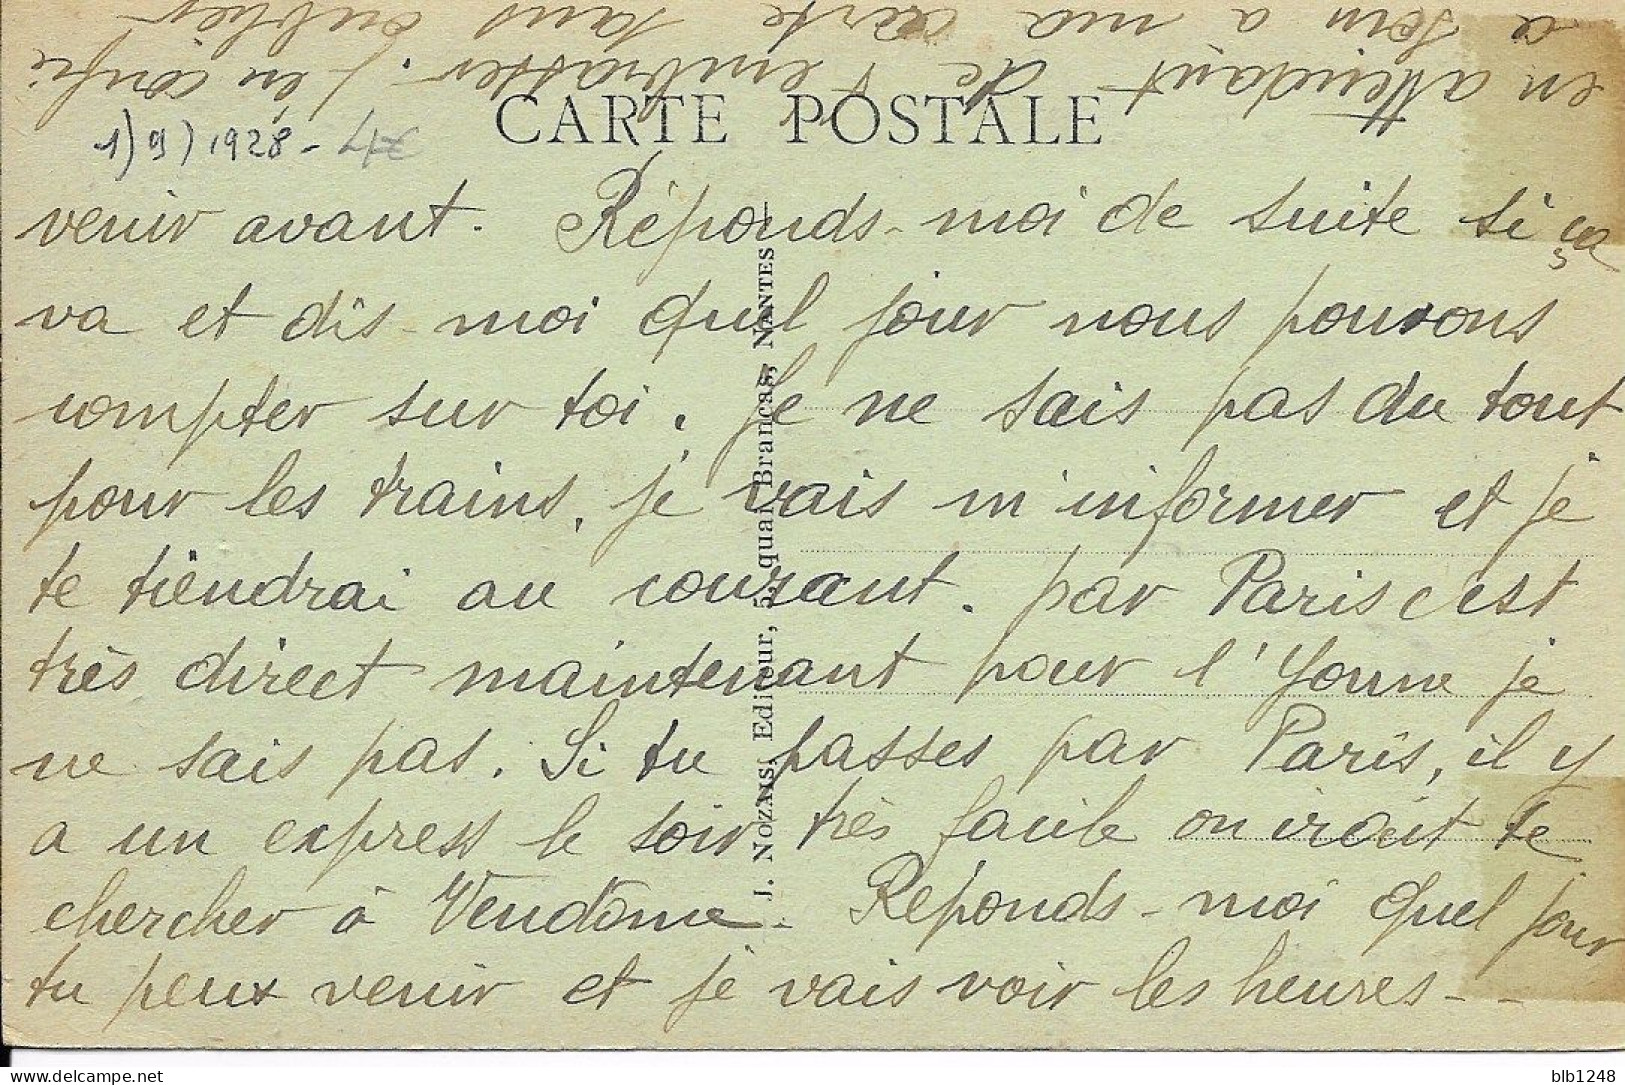 CARTE POSTALE
1) 9) 1928 - 4€
venir avant. Réponds-moi de suite si ça
va et dis-moi quel jour nous pouvons
compter sur toi. Je ne sais pas du tout
pour les trains, je vais m'informer et je
te tiendrai au courant. par Paris c'est
très direct maintenant pour l'Yonne je
ne sais pas. Si tu passes par Paris, il y
a un express le soir très facile on irait te
chercher à Vendôme. Réponds-moi quel jour
tu peux venir et je vais voir les heures--
en attendant de t'embrasser. J'en confie
ce soin à ma carte sans oublier
J. NOZAIS, Editeur, 5, quai Brancas, NANTES
blb1248